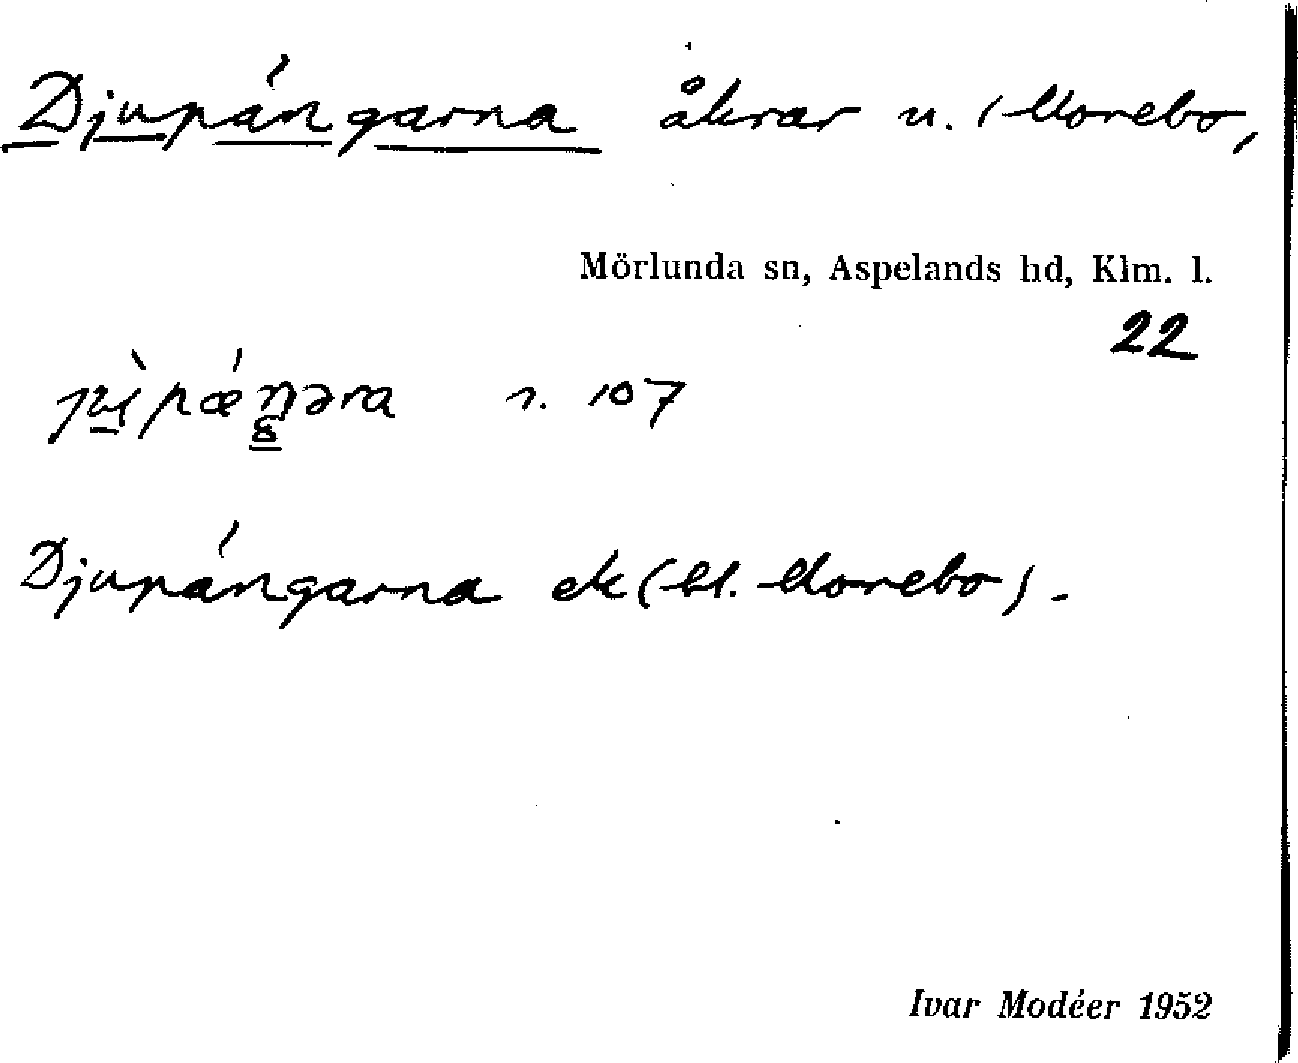 Djupángarna åkrar u. Morebo,
Mörlunda sn, Aspelands hd, Klm. l.
22
r. 107
Djupángarna ek (bl. Morebo).
Ivar Modéer 1952